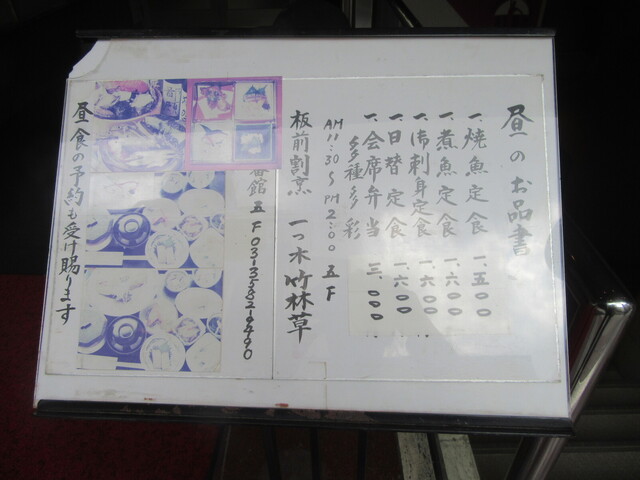 昼のお品書
一、焼魚定食 一、五〇〇
一、煮魚定食 一、六〇〇
一、御刺身定食 一、六〇〇
一、日替定食 一、六〇〇
一、会席弁当 三、〇〇〇
多種多彩
AM11:30〜PM2:00 五F
板前割烹 一つ木 竹林草
番館 五F 03-3582-9490
昼食の予約も受け賜ります